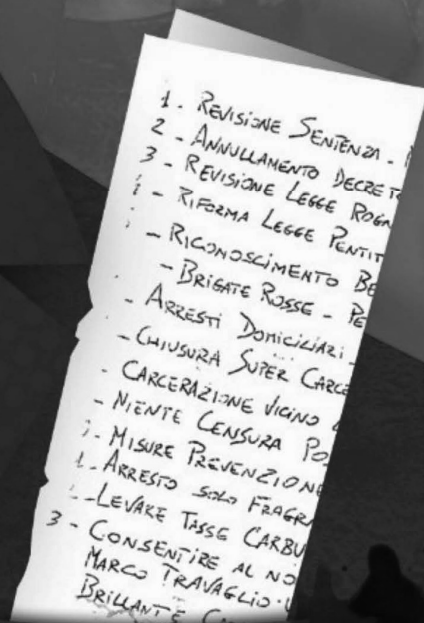 1 - REVISIONE SENTENZA -
2 - ANNULLAMENTO DECRETO
3 - REVISIONE LEGGE ROGN
- RIFORMA LEGGE PENTIT
- RICONOSCIMENTO BE
- BRIGATE ROSSE - PE
- ARRESTI DOMICILIARI -
- CHIUSURA SUPER CARCE
- CARCERAZIONE VICINO
- NIENTE CENSURA PO
- MISURE PREVENZIONE
- ARRESTO SOLO FRAGRA
- LEVARE TASSE CARBU
3 - CONSENTIRE AL NO
MARCO TRAVAGLIO
BRILLANTE